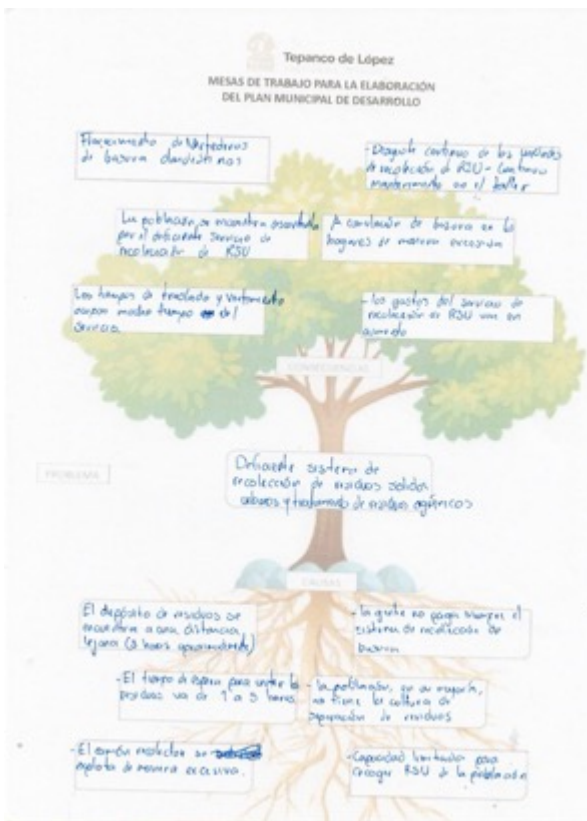 Tepanco de López
MESAS DE TRABAJO PARA LA ELABORACIÓN
DEL PLAN MUNICIPAL DE DESARROLLO
de basura clandestinos
- Desgaste continuo de las unidades
de recolección de RSU - Continuo
mantenimiento en el taller
La población se encuentra
por el deficiente servicio de
recolección de RSU
de basura en los
hogares de manera excesiva
Los tiempos de traslado y vertimiento
ocupan mucho tiempo del
servicio.
- los gastos del servicio de
recolección de RSU van en
aumento
CONSECUENCIAS
Deficiente sistema de
recolección de residuos solidos
urbanos y tratamiento de residuos orgánicos
PROBLEMA
CAUSAS
El depósito de residuos se
encuentra a una distancia
lejana (3 horas aproximadamente)
- la gente no paga siempre el
sistema de recolección de
basura
- El tiempo de espera para verter los
residuos va de 1 a 5 horas.
- la población, en su mayoría,
no tiene la cultura de
separación de residuos
- El camión recolector se
explota de manera excesiva.
- Capacidad limitada para
recoger RSU de la población